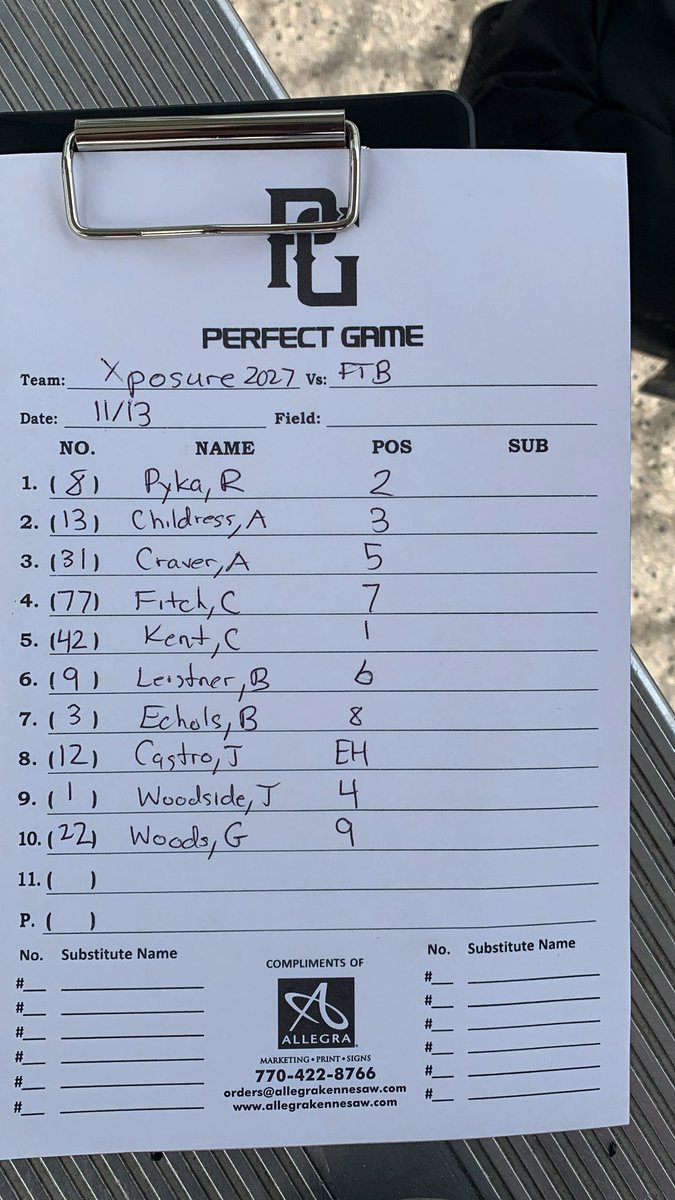 PG
PERFECT GAME
Team: Xposure 2027 Vs: FTB
Date: 11/13 Field:
NO. NAME POS SUB
1. (8) Pyka, R 2
2. (13) Childress, A 3
3. (31) Craver, A 5
4. (77) Fitch, C 7
5. (42) Kent, C 1
6. (9) Leistner, B 6
7. (3) Echols, B 8
8. (12) Castro, J EH
9. (1) Woodside, J 4
10. (22) Woods, G 9
11. ( )
P. ( )
No. Substitute Name No. Substitute Name
#__ #__
#__ #__
#__ #__
#__ #__
#__ #__
#__ #__
COMPLIMENTS OF
ALLEGRA
MARKETING • PRINT • SIGNS
770-422-8766
orders@allegrakennesaw.com
www.allegrakennesaw.com